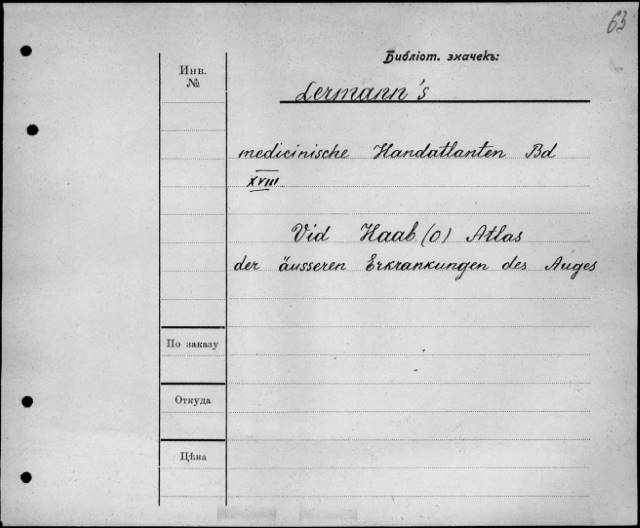 63
Библіот. значекъ:
Инв.
№
Lermann's
medicinische Handatlanten Bd
XVIII
Vid Haab (O) Atlas
der äusseren Erkrankungen des Auges
По заказу
Откуда
Цѣна